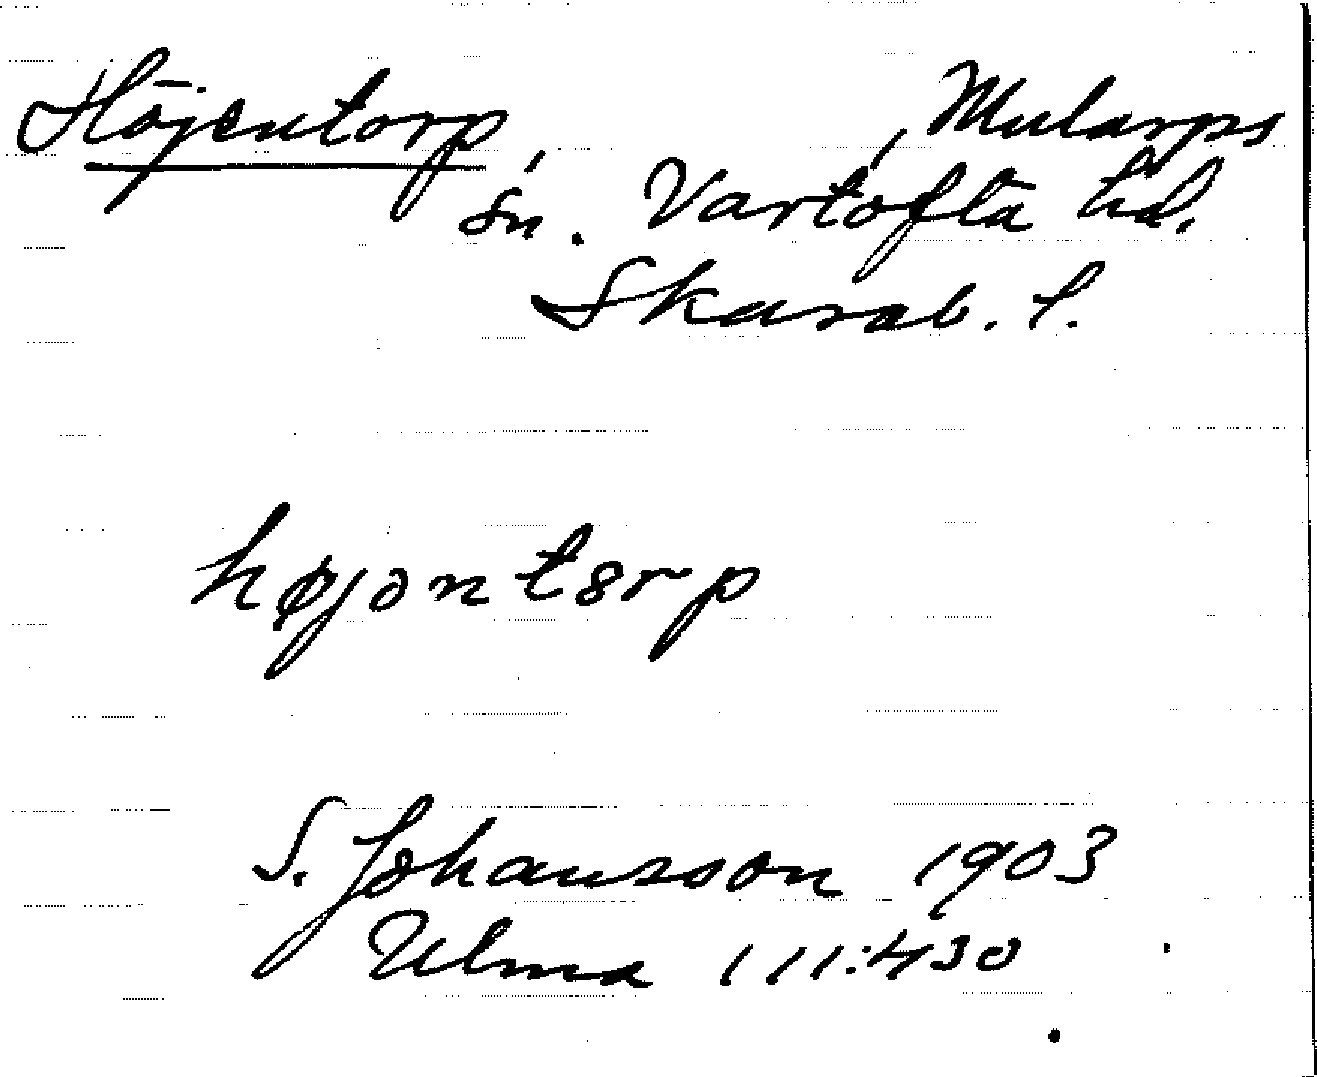 Höjentorp, Mularps
sn. Vartofta hd.
Skarab. l.
højəntorp
S. Johansson 1903
Ulma 111:430